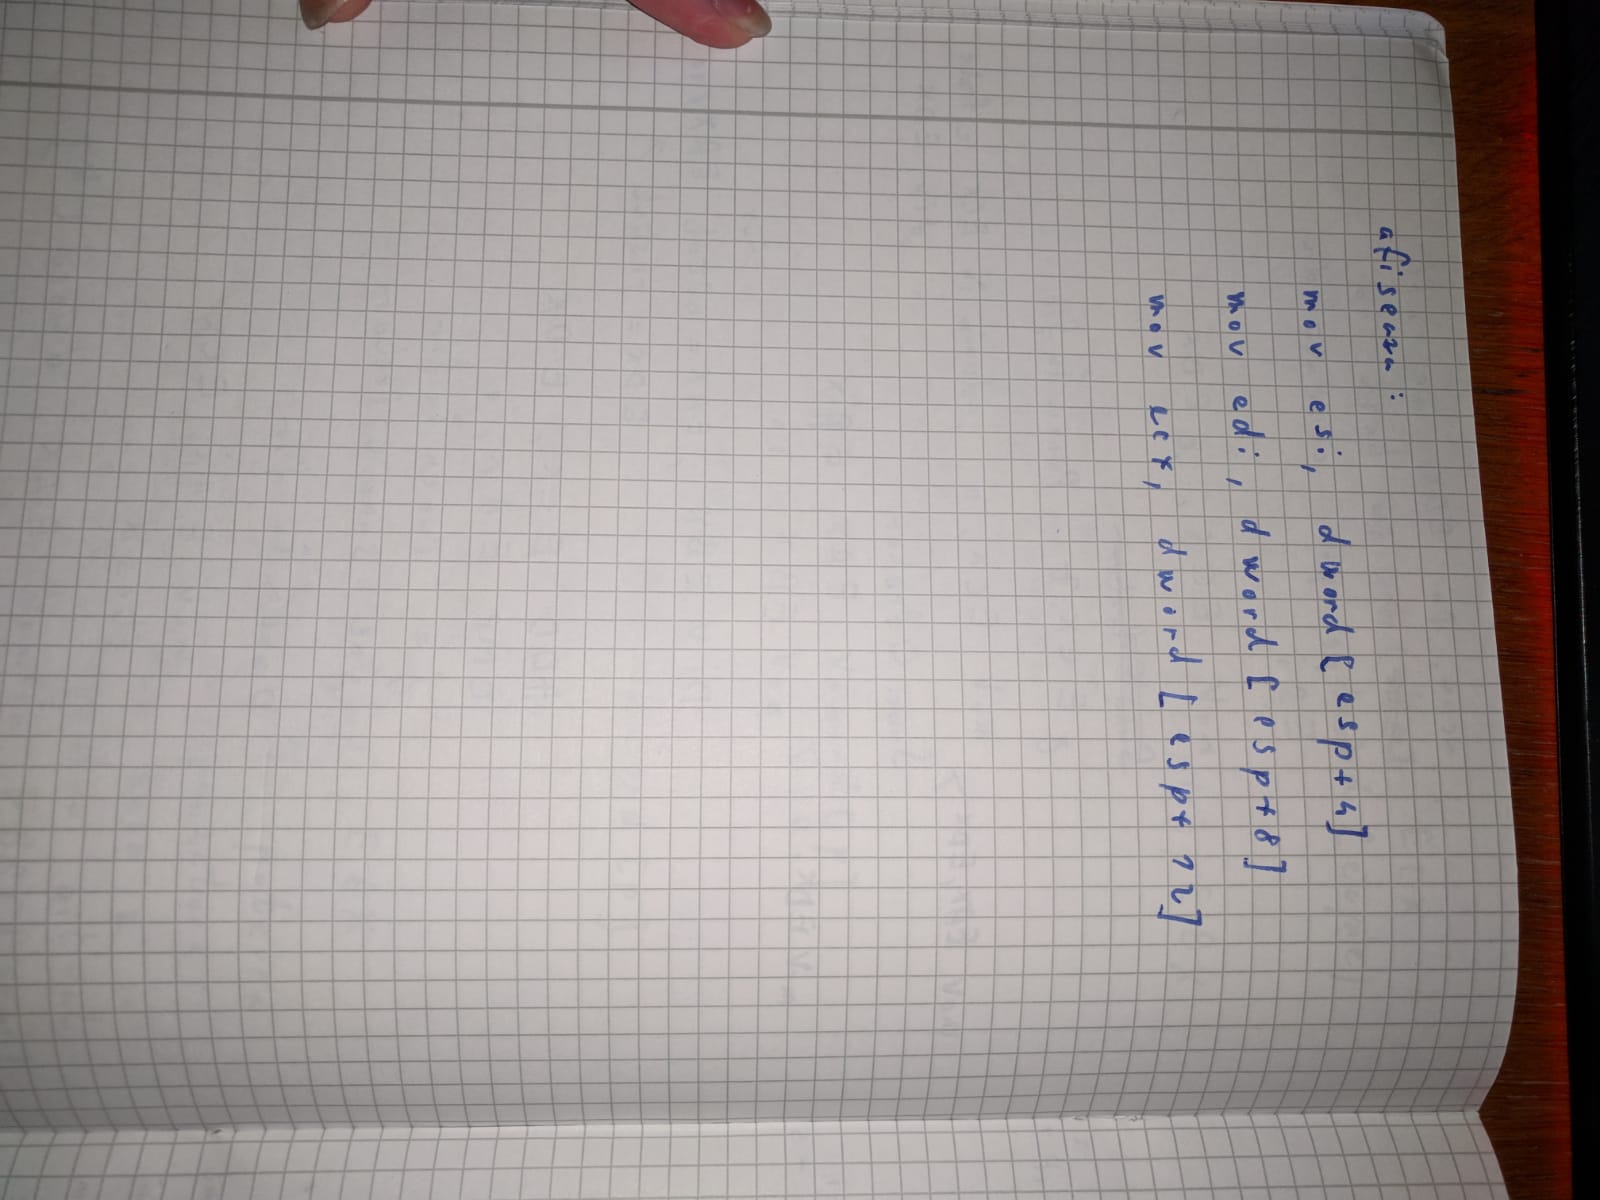 afiseaza:
mov esi, dword[esp+4]
mov edi, dword[esp+8]
mov ecx, dword[esp+12]